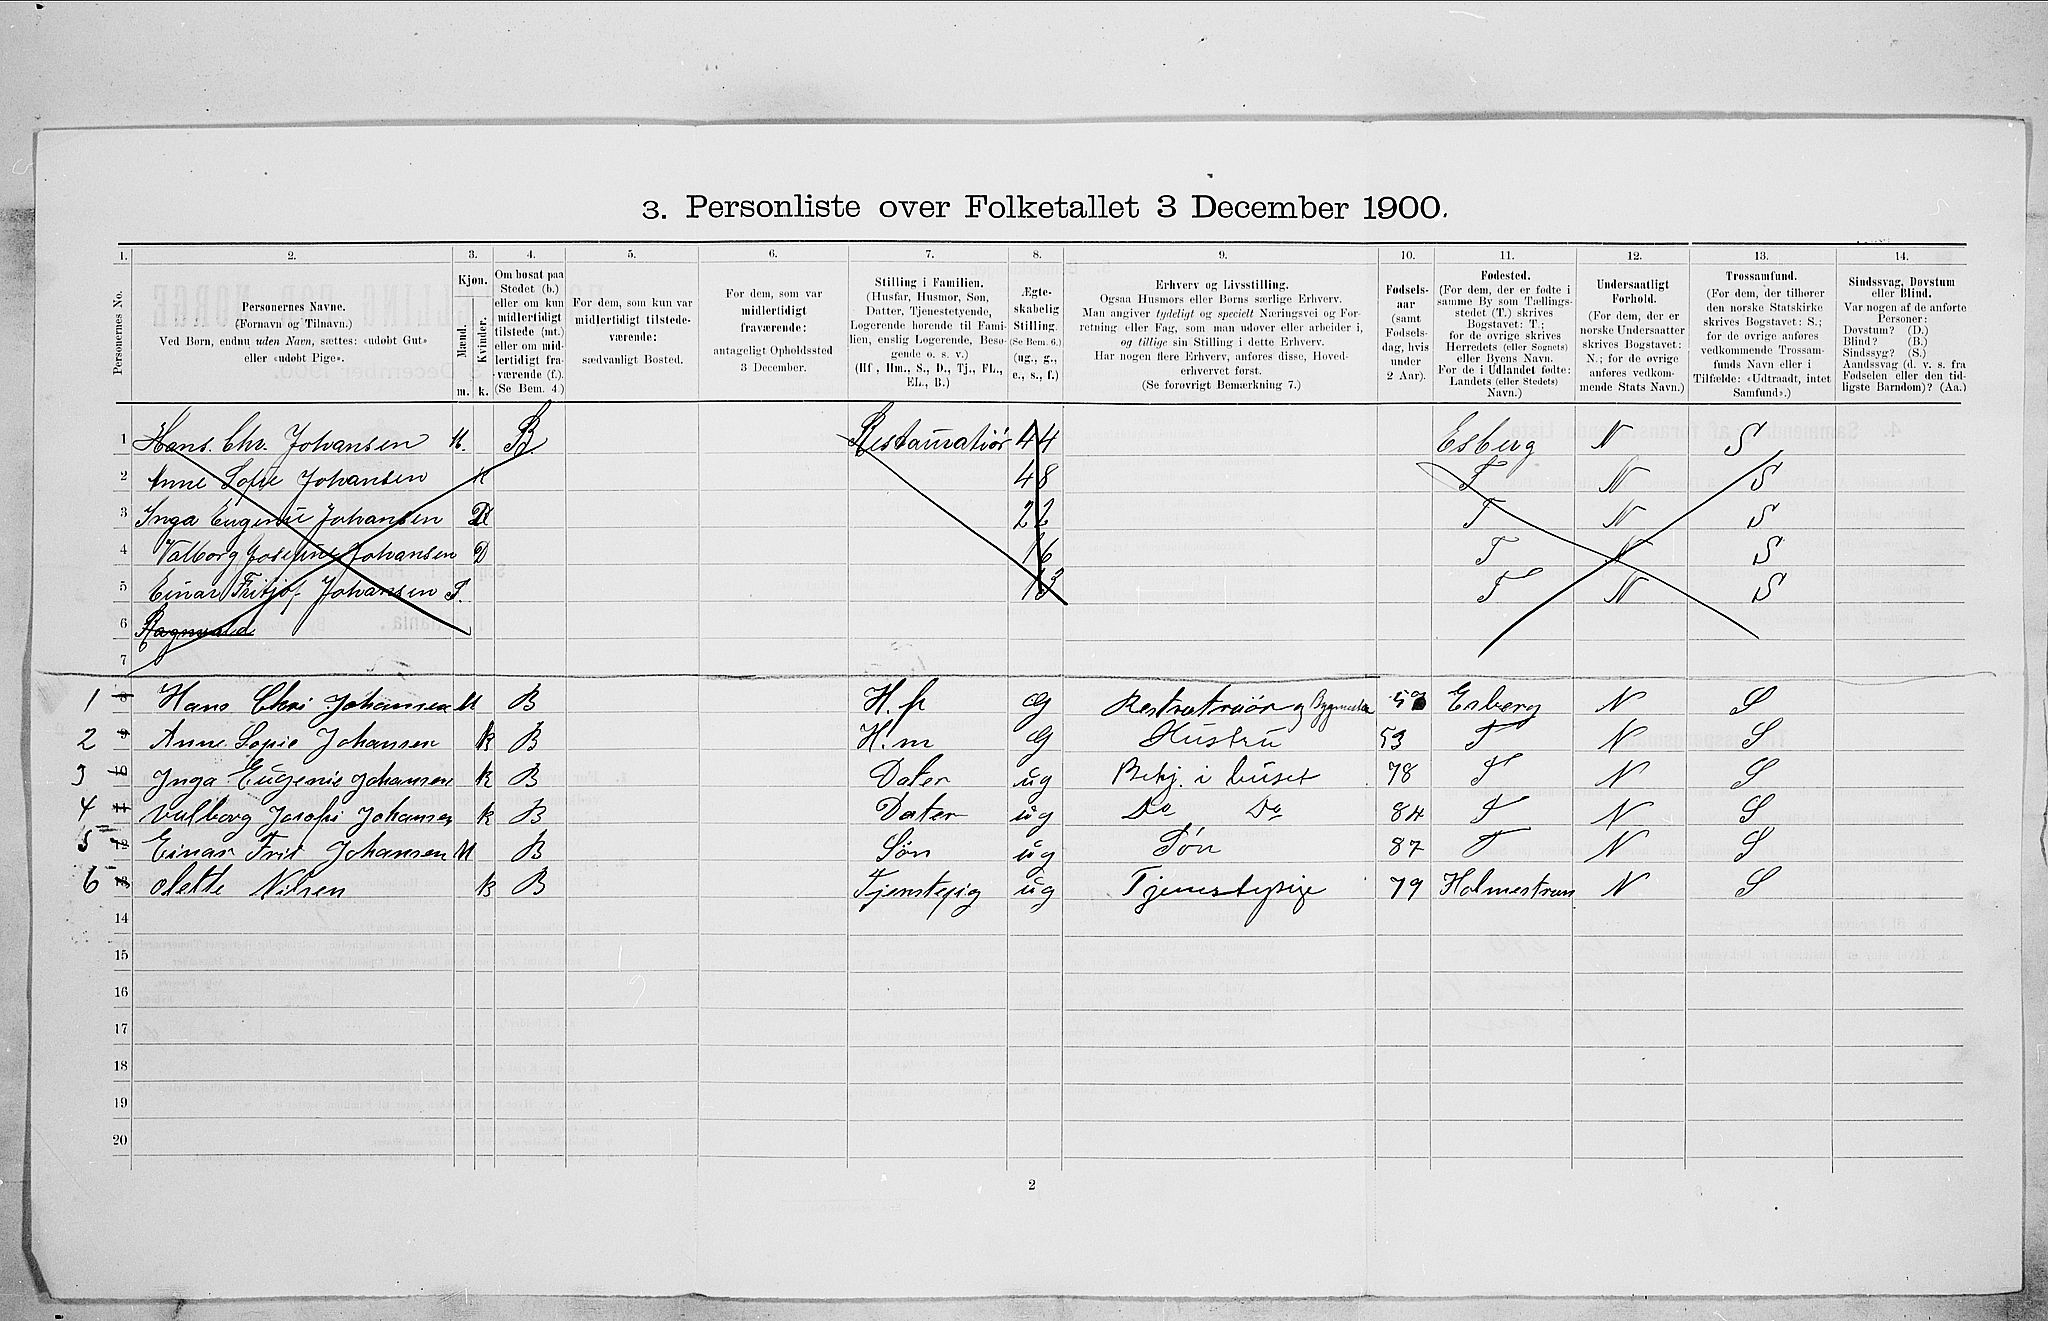 3. Personliste over Folketallet 3 December 1900.
1. 2. 3. 4. 5. 6. 7. 8. 9. 10. 11. 12. 13. 14.
Personernes No.
Personernes Navne.
(Fornavn og Tilnavn.)
Ved Børn, endnu uden Navn, sættes: «udøbt Gut»
eller «udøbt Pige».
Kjøn.
Mænd.
Kvinder.
m. k.
Om bosat paa
Stedet (b.)
eller om kun
midlertidigt
tilstede (mt.)
eller om mid-
lertidigt fra-
værende (f.).
(Se Bem. 4.)
For dem, som kun var
midlertidigt tilstede-
værende:
sædvanligt Bosted.
For dem, som var
midlertidigt
fraværende:
antageligt Opholdssted
3 December.
Stilling i Familien.
(Husfar, Husmor, Søn,
Datter, Tjenestetyende,
Logerende hørende til Fami-
lien, enslig Logerende, Besø-
gende o. s. v.)
(Hf., Hm., S., D., Tj., FL.,
EL., B.)
Ægte-
skabelig
Stilling.
(Se Bem. 6.)
(ug., g.,
e., s., f.)
Erhverv og Livsstilling.
Ogsaa Husmors eller Børns særlige Erhverv.
Man angiver tydeligt og specielt Næringsvei og For-
retning eller Fag, som man udøver eller arbeider i,
og tillige sin Stilling i dette Erhverv.
Har nogen flere Erhverv, anføres disse, Hoved-
erhvervet først.
(Se forøvrigt Bemærkning 7.)
Fødsels-
aar
(samt
Fødsels-
dag, hvis
under
2 Aar).
Fødested.
(For dem, der er fødte i
samme By som Tællings-
stedet (T.) skrives
Bogstavet: T.;
for de øvrige skrives
Herredets (eller Sognets)
eller Byens Navn.
For de i Udlandet fødte:
Landets (eller Stedets)
Navn.)
Undersaatligt
Forhold.
(For dem, der er
norske Undersaatter
skrives Bogstavet:
N.; for de øvrige
anføres vedkom-
mende Stats Navn.)
Trossamfund.
(For dem, der tilhører
den norske Statskirke
skrives Bogstavet: S.;
for de øvrige anføres
vedkommende Trossam-
funds Navn eller i
Tilfælde: «Udtraadt, intet
Samfund».)
Sindssvag, Døvstum
eller Blind.
Var nogen af de anførte
Personer:
Døvstum? (D.)
Blind? (B.)
Sindssyg? (S.)
Aandssvag (d. v. s. fra
Fødselen eller den tid-
ligste Barndom)? (Aa.)
1 Hans. Chr. Johansen M. B. Restauratiør 44 Esberg N S
2 Anne Sofie Johansen K 48 T N S
3 Inga Eugenie Johansen 22 T N S
4 Valborg Josefine Johansen D 16 T N S
5 Einar Fritjof Johansen 13 T N S
6 Ragnvald
7
1 8 Hans Chri Johansen M B H. f G og 5 Esberg N S
2 9 Anne Sopie Johansen K B H. m G Hustru 53 T N S
3 10 Inga Eugenie Johansen K B Dater ug Betj. i huset 78 T N S
4 11 Valborg Josofi Johansen K B Dater ug Do Do 84 T N S
5 12 Einar Frit Johansen M B Søn ug Søn 87 T N S
6 13 Olette Nilsen K B Tjenstepig ug Tjenestepige 79 Holmestran N S
14
15
16
17
18
19
20
2